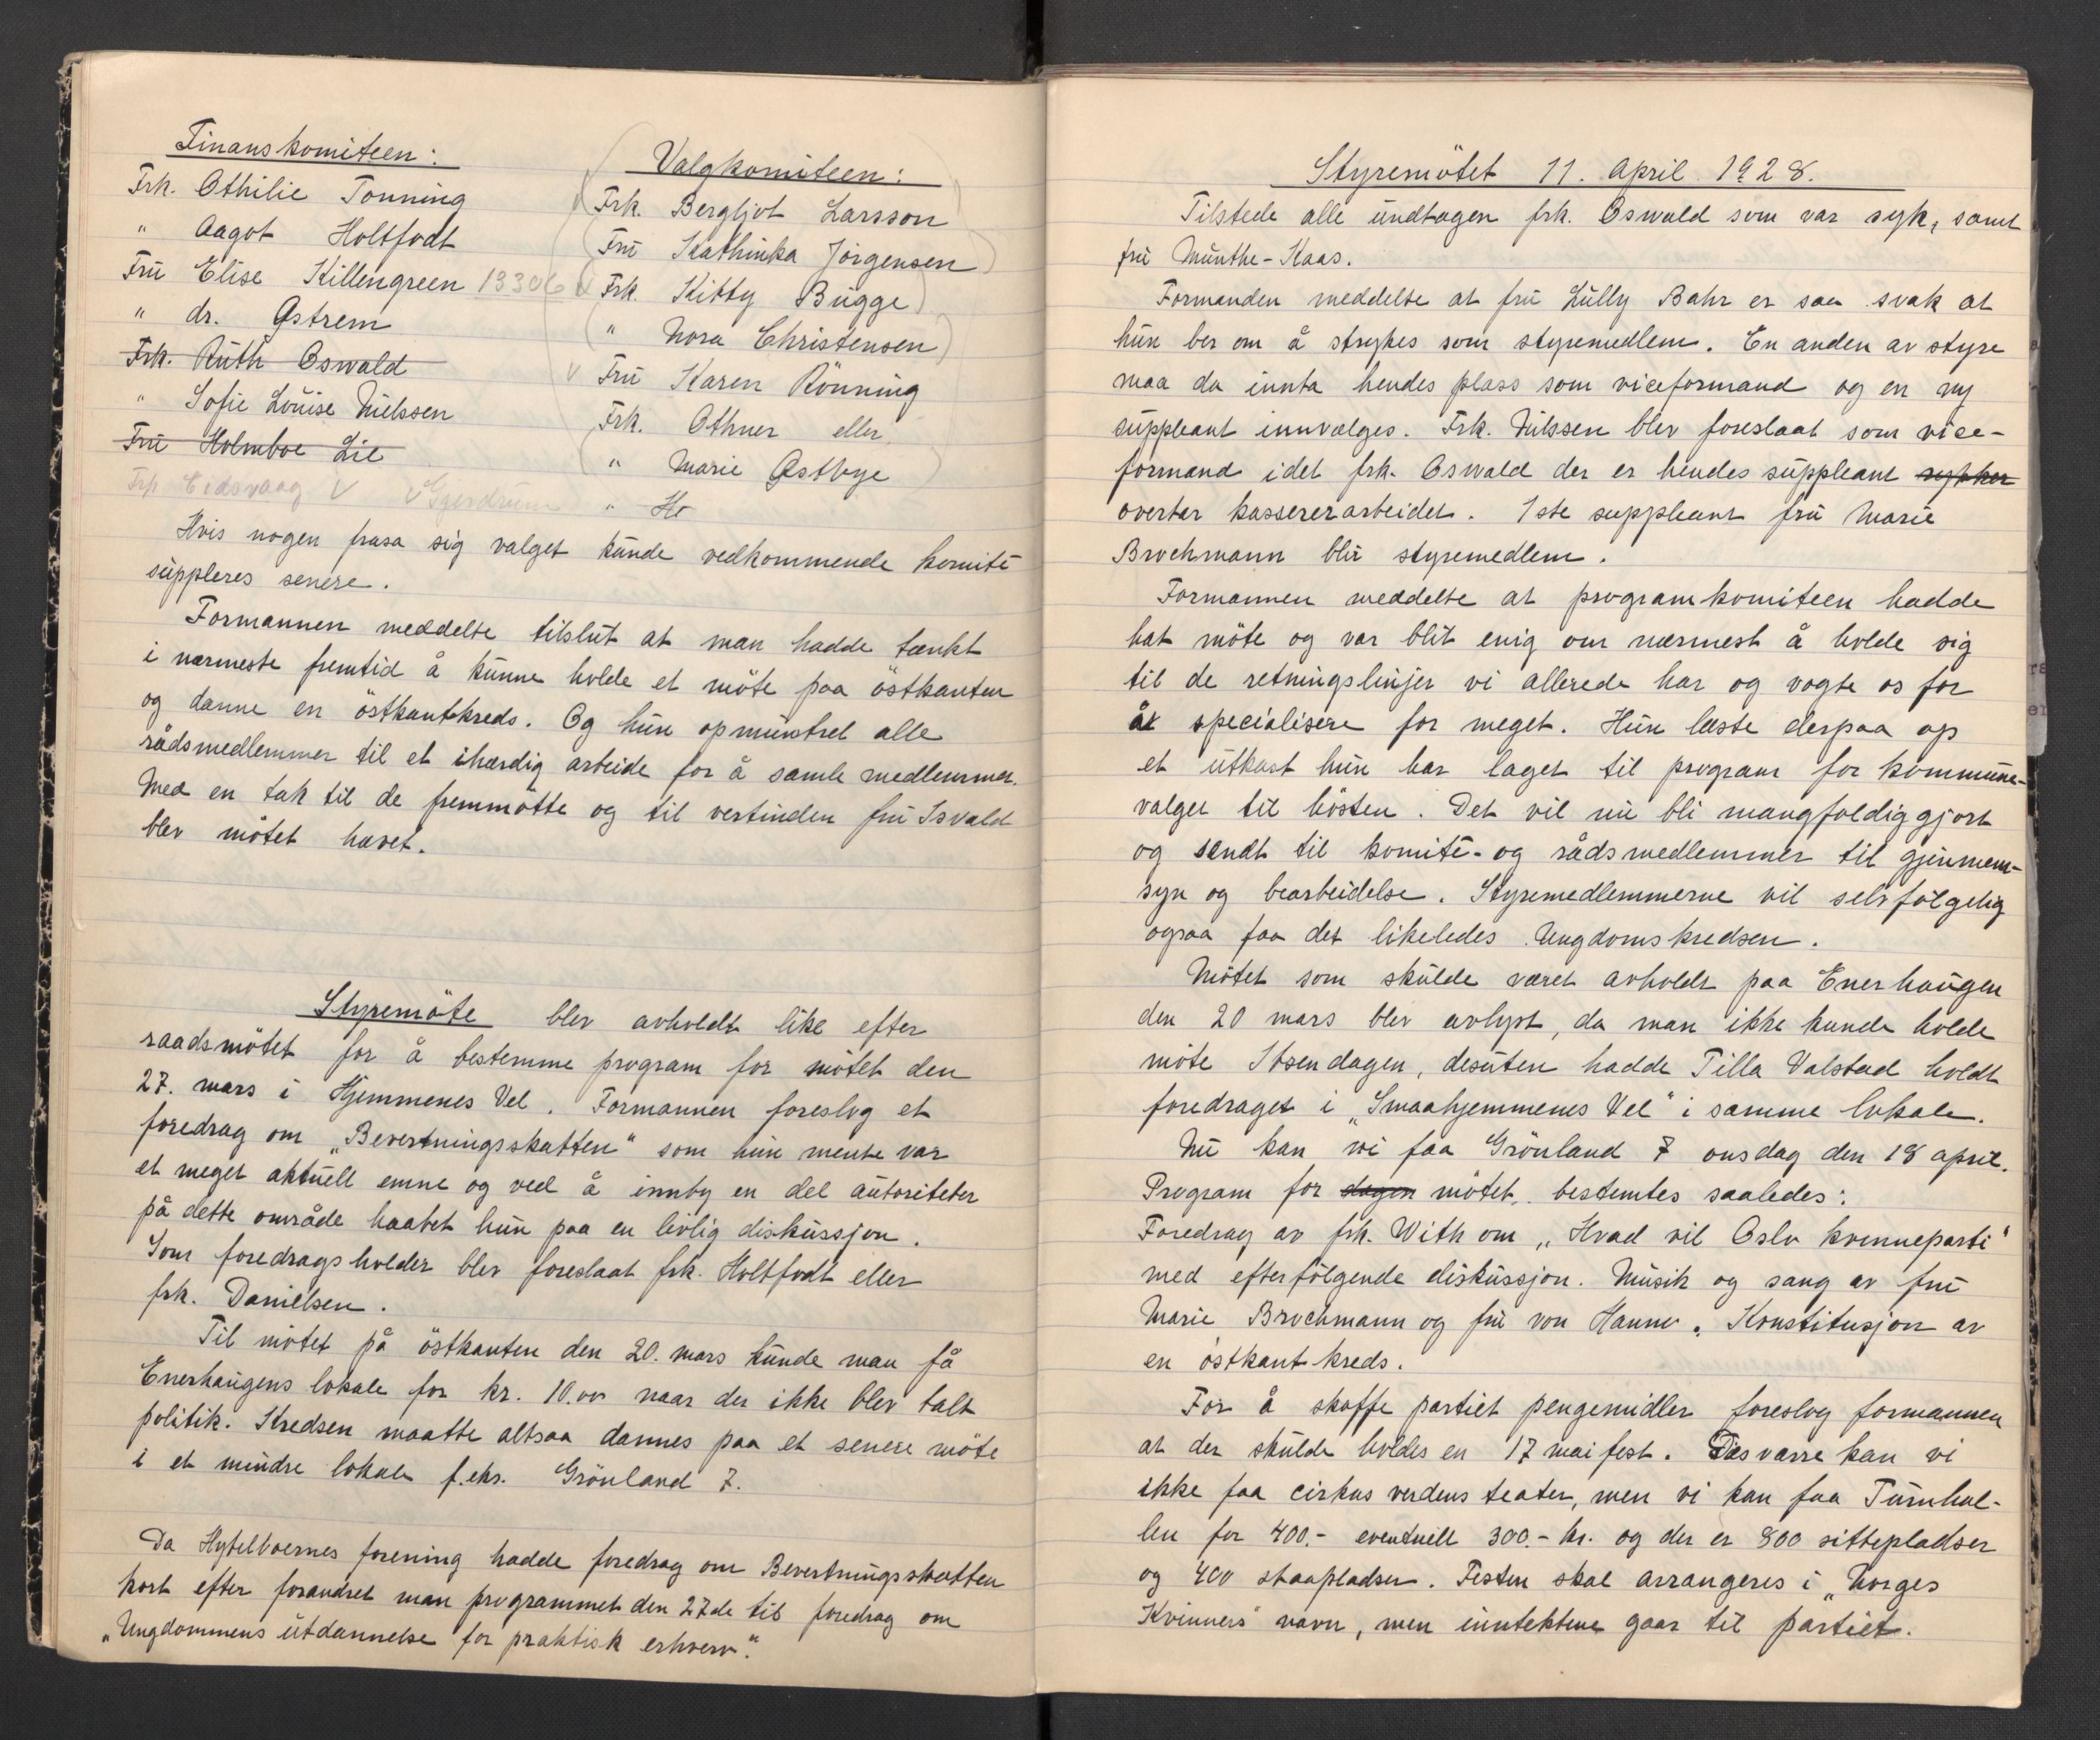 Finanskomiteen:
Frk. Othilie Tonning
" Aagot Holtfodt
Frü Elise Killengreen 13306
" dr. Østrem
Frk. Rüth Oswald
" Sofie Loüise Nielssen
Frü Holmboe Lie
Frk. Eidsvaag V V Gjerdrum
Valgkomiteen:
Frk. Bergljot Larsson
Frü Kathinka Jörgensen
V Frk. Kitty Bügge
" Nora Christensen
V Frü Karen Rönning
Frk. Othner eller
" Marie Østbye
" Ho
Hvis nogen frasa sig valget künde vedkommende komité
süppleres senere.
Formannen meddelte tilslüt at man hadde tænkt
i nærmeste fremtid å künne holde et möte paa östkanten
og danne en östkantkreds. Og hün opmüntret alle
rådsmedlemmer til et ihærdig arbeide for å samle medlemmer.
Med en tak til de fremmötte og til vertinden frü Isvald
blev mötet hævet.
Styremöte blev avholdt like efter
raadsmötet for å bestemme program for mötet den
27. mars i Hjemmenes Vel. Formannen foreslog et
foredrag om „Bevertningsskatten" som hün mente var
et meget aktüell emne og ved å innby en del aütoriteter
på dette område haabet hün paa en livlig disküssjon.
Som foredragsholder blev foreslaat frk. Holtfodt eller
frk. Danielsen.
Til mötet på östkanten den 20. mars künde man få
Enerhaügens lokale for kr. 10.00 naar der ikke blev talt
politik. Kredsen maatte altsaa dannes paa et senere möte
i et mindre lokale f.eks. Grönland 7.
Da Hybelboernes forening hadde foredrag om Bevertningsskatten
kort efter forandret man programmet den 27de til foredrag om
„Ungdommens ütdannelse for praktisk erhverv".
Styremötet 11. april 1928.
Tilstede alle ündtagen frk. Oswald som var syk, samt
frü Münthe-Kaas.
Formanden meddelte at frü Lülly Bahr er saa svak at
hün ber om å strykes som styremedlem. En anden av styre
maa da innta hendes plass som viceformand og en ny
süppleant innvælges. Frk. Nilssen blev foreslaat som vice-
formand idet frk. Oswald der er hendes süppleant rykker
overtar kassererarbeidet. 1ste suppleant frü Marie
Brochmann blir styremedlem.
Formannen meddelte at programkomiteen hadde
hat möte og var blit enig om nærmest å holde sig
til de retningslinjer vi allerede har og vogte os for
å specialisere for meget. Hün læste derpaa op
et ütkast hün har laget til program for kommüne-
valget til hösten. Det vil nü bli mangfoldiggjort
og sendt til komité- og rådsmedlemmer til gjennem-
syn og bearbeidelse. Styremedlemmerne vil selvfölgelig
ogsaa faa det likeledes Ungdomskredsen.
Mötet som skülde været avholdt paa Enerhaügen
den 20 mars blev avlyst, da man ikke kunde holde
möte Ibsendagen, desüten hadde Tilla Valstad holdt
foredraget i „Smaahjemmenes Vel" i samme lokale.
Nü kan vi faa Grönland 7 onsdag den 18 april.
Program for dagen mötet bestemtes saaledes:
Foredrag av frk. With om „Hvad vil Oslo kvinneparti"
med efterfölgende disküssjon. Müsik og sang av frü
Marie Brochmann og frü von Hanno. Konstitusjon av
en östkantkreds.
For å skaffe partiet pengemidler foreslog formannen
at der skülde holdes en 17 mai fest. Desværre kan vi
ikke faa cirkus verdens teater, men vi kan faa Türnhal-
len for 400.- eventuell 300.- kr. og der er 800 sittepladser
og 400 staapladser. Festen skal arrangeres i „Norges
Kvinners" navn, men inntektene gaar til partiet.